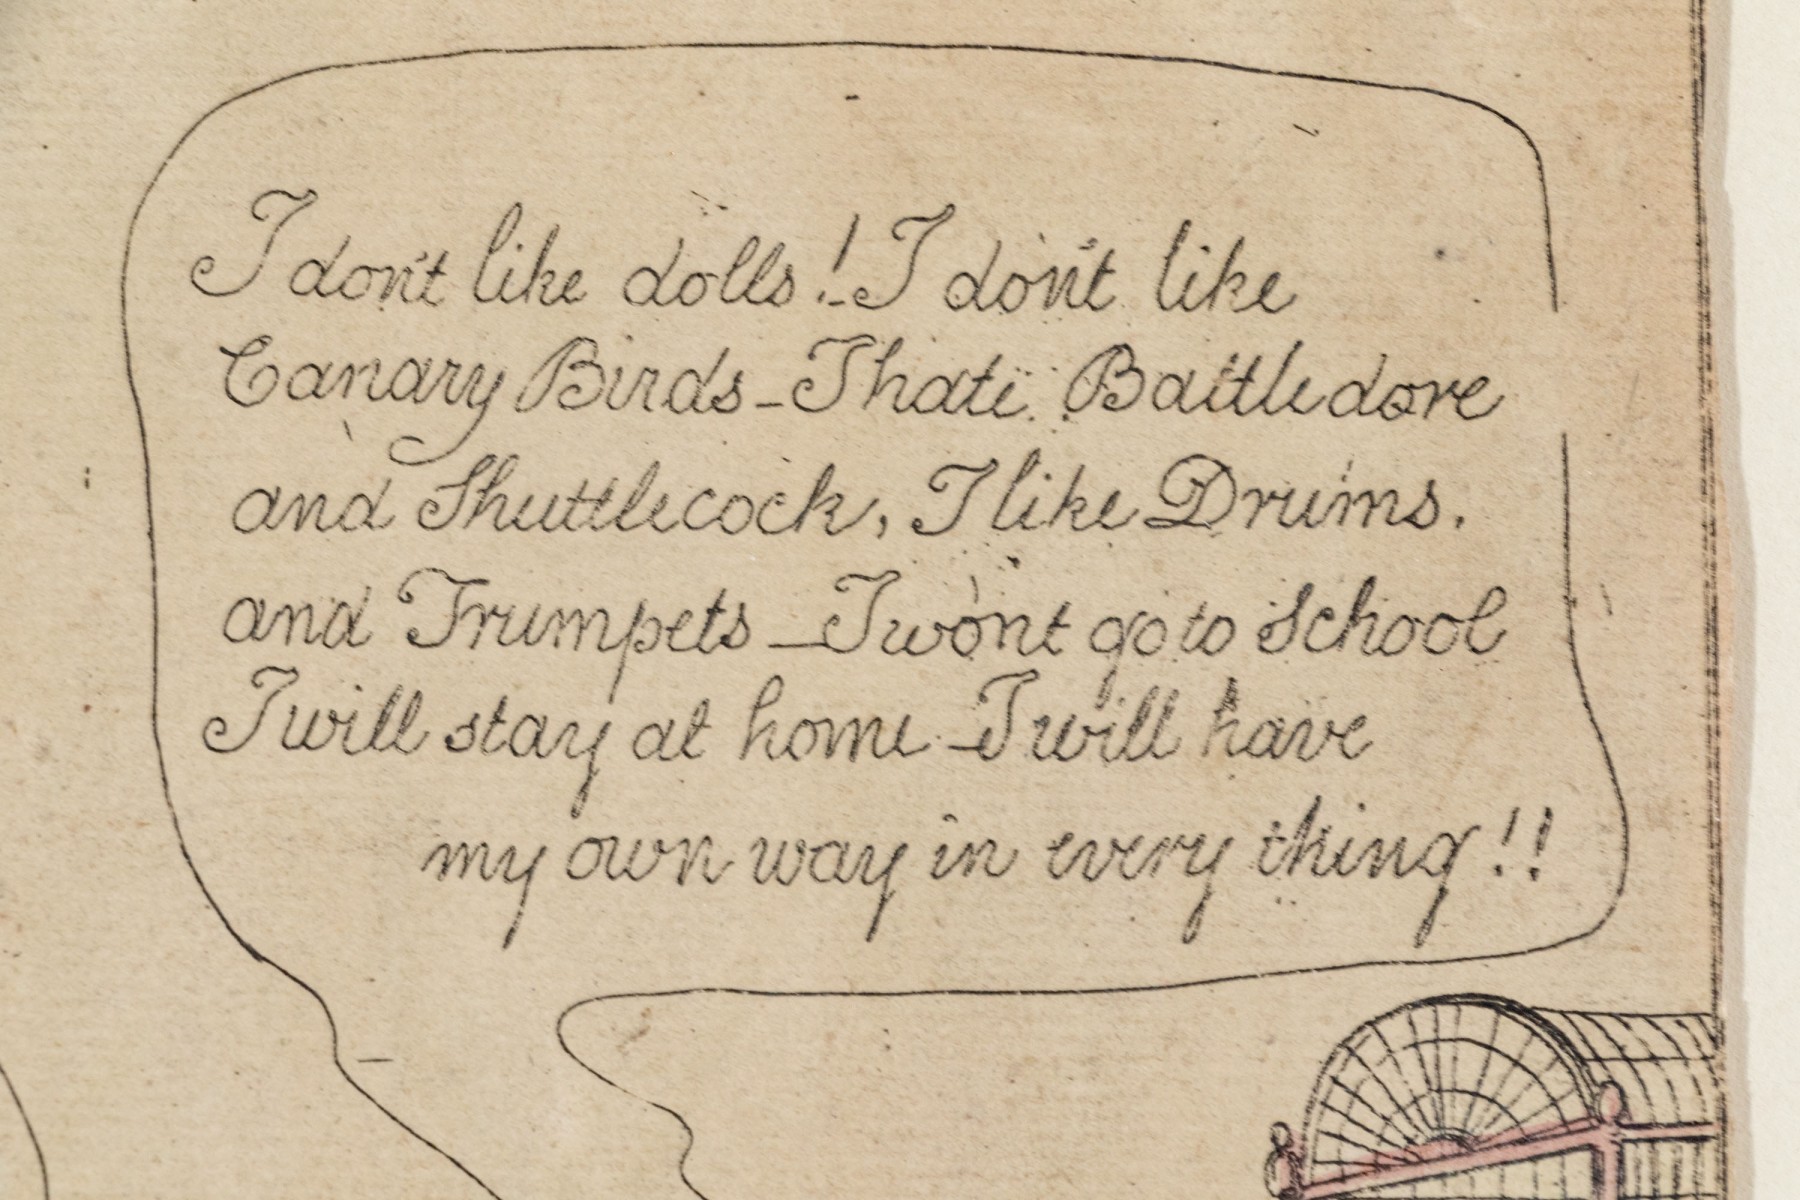 I don't like dolls! _ I don't like
Canary Birds _ I hate Battledore
and Shuttlecock, I like Drums.
and Trumpets _ I wo'nt go to School
I will stay at home _ I will have
my own way in every thing!!